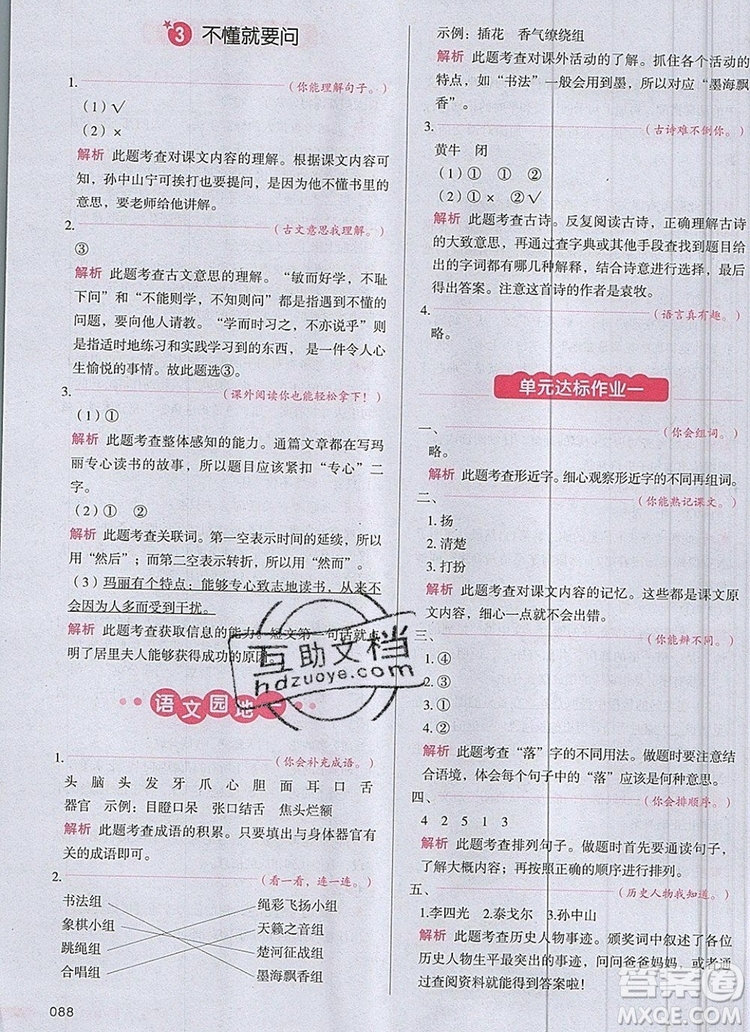 3 不懂就要问
1.
(你能理解句子。)
(1)√
(2)×
解析 此题考查对课文内容的理解。根据课文内容可以
可知，孙中山宁可挨打也要提问，是因为他不懂书里的
意思，要老师给他讲解。
2.
(古文意思我理解。)
③
解析 此题考查古文意思的理解。“敏而好学，不耻
下问”和“不能则学，不知则问”都是指遇到不懂的
问题，要向他人请教。“学而时习之，不亦说乎”则
是指适时地练习和实践学习到的东西，是一件令人心
生愉悦的事情。故此题选③。
3.
(课外阅读你也能轻松拿下！)
(1)①
解析 此题考查整体感知的能力。通篇文章都在写玛
丽专心读书的故事，所以题目应该紧扣“专心”二
字。
(2)① ②
解析 此题考查关联词。第一空表示时间的延续，所以
用“然后”；而第二空表示转折，所以用“然而”。
(3)玛丽有个特点：能够专心致志地读书，从来不
因为人多而受到干扰。
解析 此题考查获取信息的能力。短文第一句话就点
明了居里夫人能够获得成功的原因。
语文园地一
1.
(你会补充成语。)
头 脑 头 发 牙 爪 心 胆 面 耳 口 舌
器官 示例：目瞪口呆 张口结舌 焦头烂额
解析 此题考查成语的积累。只要填出与身体器官有
关的成语即可。
2.
(看一看，连一连。)
书法组 绳彩飞扬小组
象棋小组 天籁之音组
跳绳组 楚河征战组
合唱组 墨海飘香组
088
示例：插花 香气缭绕组
解析 此题考查对课外活动的了解。抓住各个活动的
特点，如“书法”可以想到用墨，所以是“墨海飘
香”。
3.
(古诗难不倒你。)
黄牛 闭
(1)① ① ②
(2)② ① ②
解析 此题考查古诗。反复阅读古诗，正确理解古诗
的大致意思，再通过查字典或其他手段查找题目给
出的字词有哪几种解释，结合诗意进行选择即可
得出答案。注意这首诗的作者是袁牧。
4.
(语言真有趣。)
略。
单元达标作业一
一、
(你会组词。)
略。
解析 此题考查形近字。细心观察形近字的不同再组词。
二、
(你能熟记课文。)
1. 扬
2. 清楚
3. 打扮
解析 此题考查对课文内容的记忆。这些都是课文原
文内容，细心一点就不会出错。
三、
(你能辨不同。)
1. ④
2. ③
3. ①
4. ②
解析 此题考查“落”字的不同用法。做题时要注意结
合语境，体会每个句子中的“落”应该是何种意思。
四、
(你会排顺序。)
4 2 5 1 3
解析 此题考查排列句子。做题时首先要先阅读一下
内容，再按照正确的顺序进行排列。
五、
(历史人物我知道。)
1.李四光 2.泰戈尔 3.孙中山
解析 此题考查历史人物事迹。颁奖词中一般都会出
现此人的最突出事迹，可问问爸爸妈妈，或者通
过查阅资料就能得到答案啦！
互助文档
hdzuoye.com
答案圈
MXQE.COM